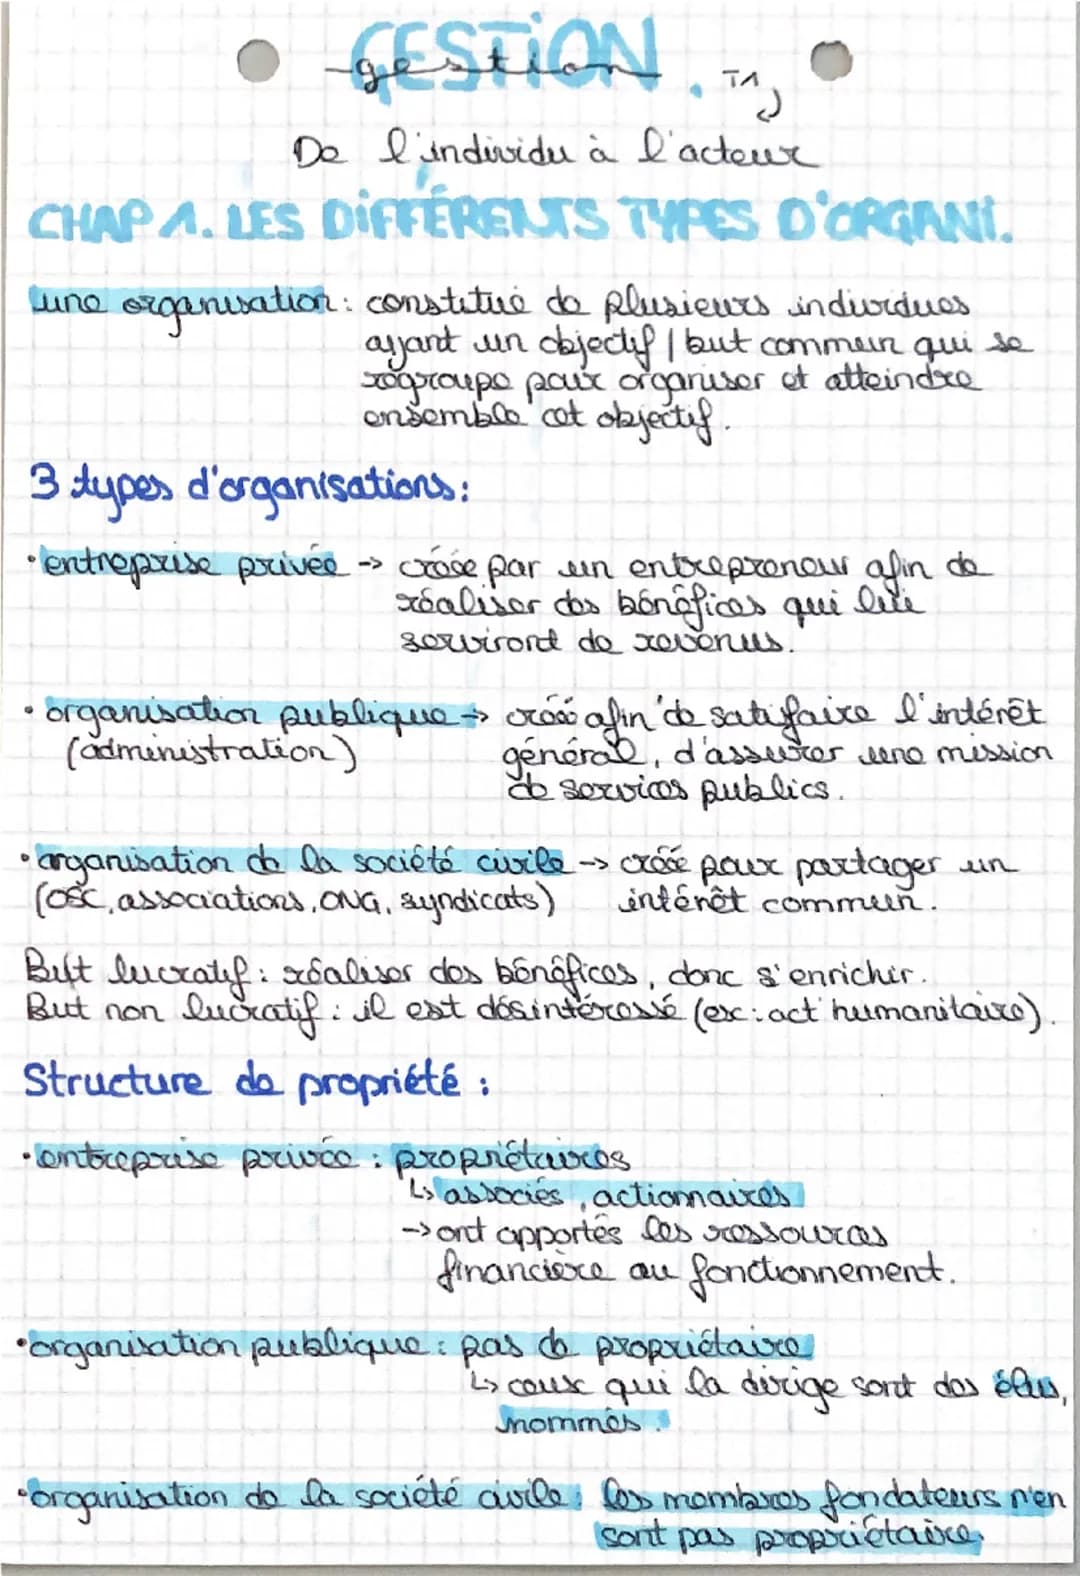 GESTION
gestion . T1
De l'individu à l'acteur
CHAP 1. LES DIFFÉRENTS TYPES D'ORGANI.
une organisation : constitué de plusieurs individues
ayant un objectif / but commun qui se
regroupe pour organiser et atteindre
ensemble cet objectif.
3 types d'organisations :
• entreprise privée -> créée par un entrepreneur afin de
réaliser des bénéfices qui lui
serviront de revenus.
• organisation publique -> créé afin de satisfaire l'intérêt
(administration) général, d'assurer une mission
de services publics.
• organisation de la société civile -> créée pour partager un
(OSC, associations, ONG, syndicats) intérêt commun.
But lucratif : réaliser des bénéfices, donc s'enrichir.
But non lucratif : il est désintéressé (ex : act° humanitaire).
Structure de propriété :
• entreprise privée : propriétaires
↳ associés, actionnaires
-> ont apportés les ressources
financière au fonctionnement.
• organisation publique : pas de propriétaire
↳ ceux qui la dirige sont des élus,
nommés.
• organisation de la société civile : les membres fondateurs n'en
sont pas propriétaire.